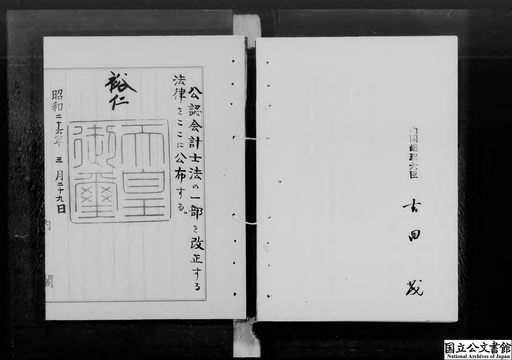 公認会計士法の一部を改正する
法律をここに公布する。
裕仁
天皇
御璽
昭和二十六年三月二十九日
内閣
内閣総理大臣
吉田茂
国立公文書館
National Archives of Japan